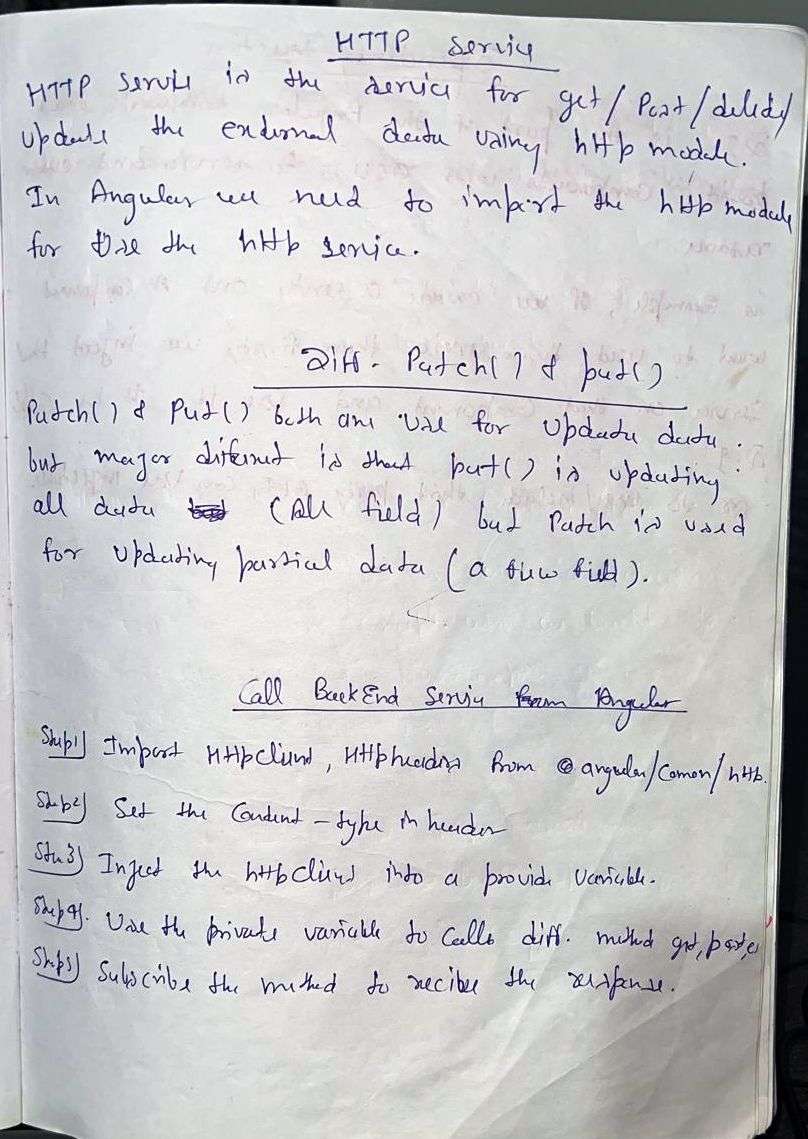 HTTP Service
HTTP Service is the service for get/Post/delete/
update the external data using http module.
In Angular we need to import the http module
for Use the http service.
Diff. Patch() & put()
Patch() & Put() both are use for update data.
but major different is that put() is updating
all data (All field) but Patch is used
for updating partial data (a few field).
Call BackEnd Service from Angular
Step1) Import HttpClient, Httpheaders from @angular/Comon/http.
Step2) Set the Content-type in header
Step3) Inject the httpClient into a private variable.
Step4). Use the private variable to calls diff. method get, post,
Step5) Subscribe the method to recibe the response.